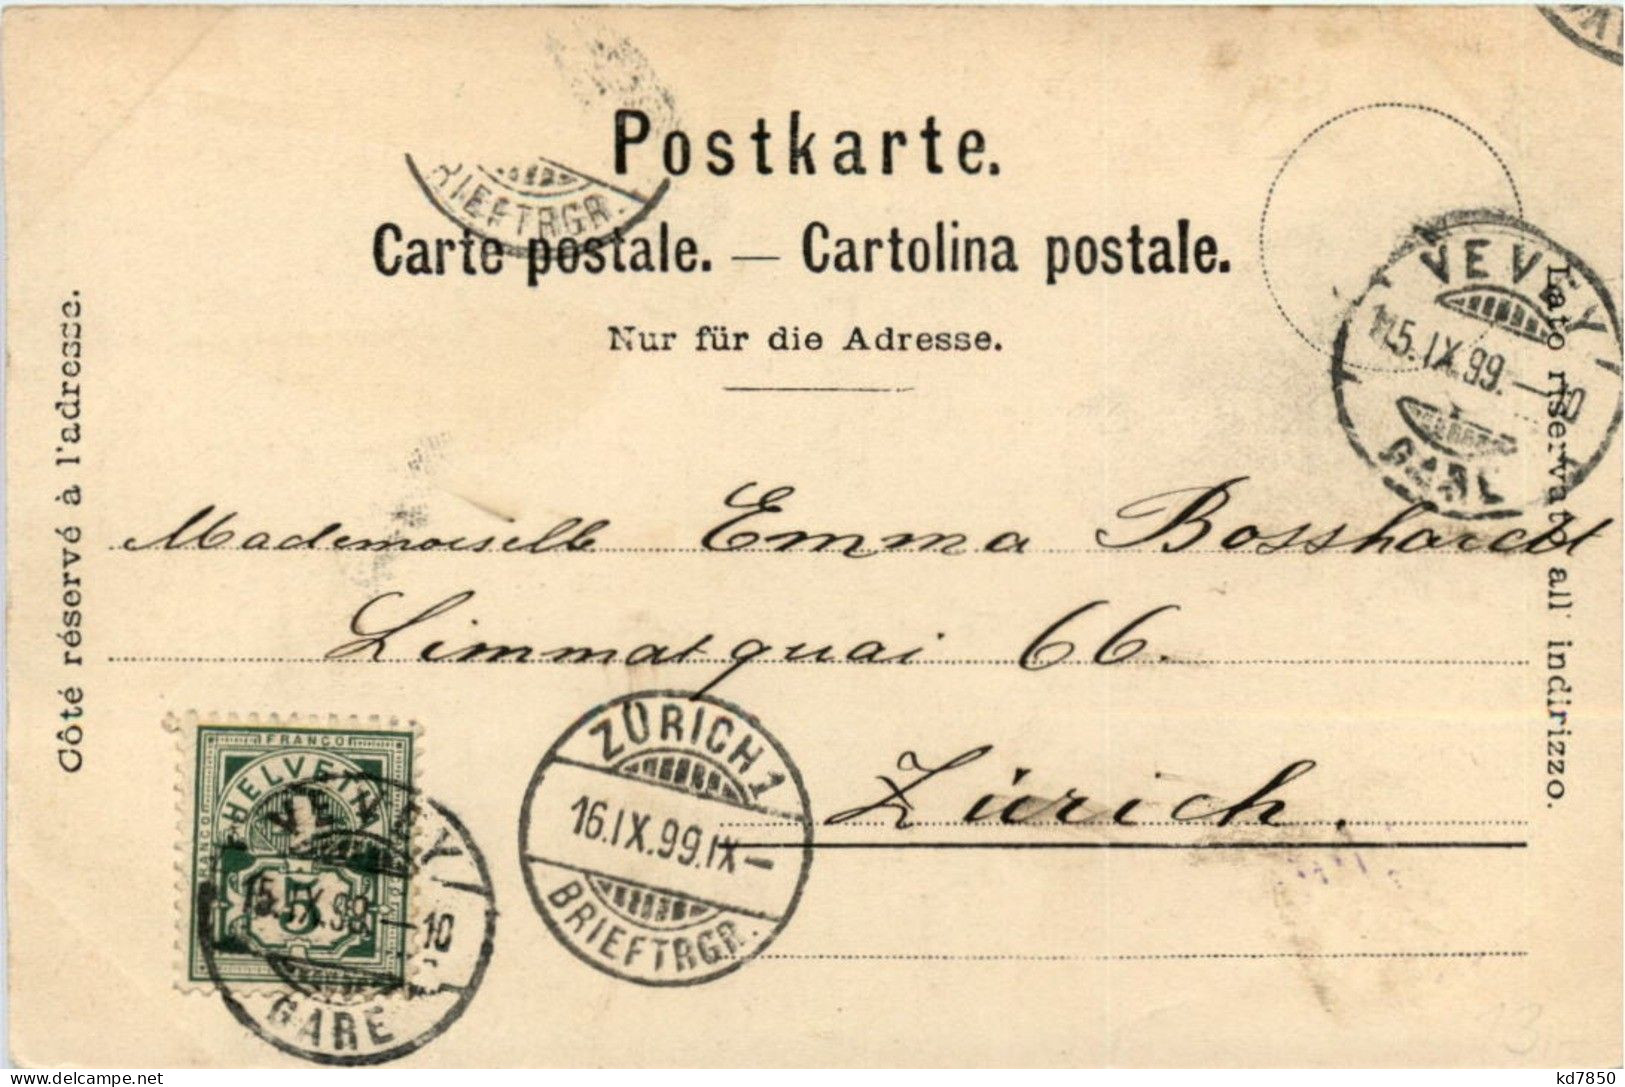 Postkarte.
RIEFTRGR.
Carte postale. — Cartolina postale.
Nur für die Adresse.
Côté réservé à l'adresse.
Lato riservato all' indirizzo.
VEVEY
15.IX.99.—10
GARE
Mademoiselle Emma Bosshardt
Limmatquai 66.
Zürich.
FRANCO
HELVETIA
FRANCO
5
VEVEY
15.IX.99.—10
GARE
ZÜRICH 1
16.IX.99.IX—
BRIEFTRGR.
13.
kd7850